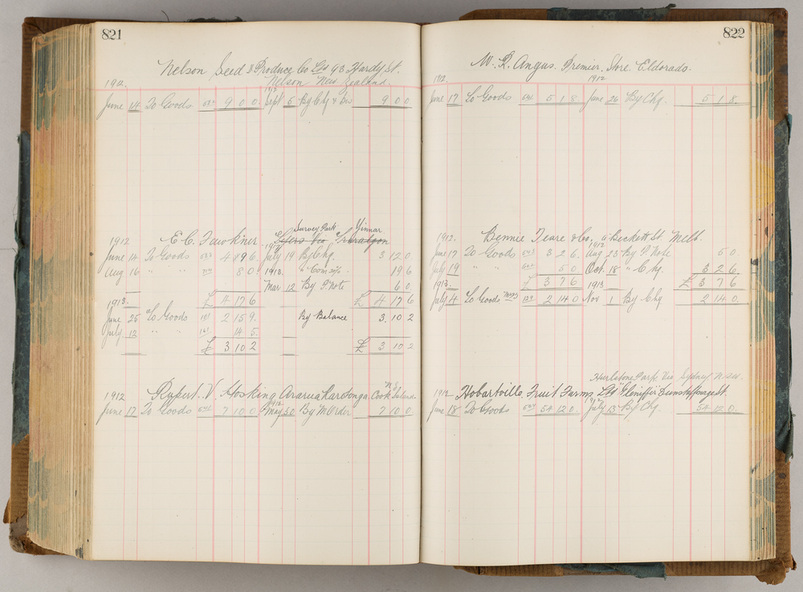 821
Nelson Seed & Produce Co Ltd 93 Hardy St.
Nelson New Zealand
1912
June 14 To Goods 9 0 0 Sept 6 By Chq & Dis 9 0 0
Survey Park Yinnar
1912 E. C. Fawkner Tyers Via Traralgon
June 14 To Goods 4 9 6 July 19 By Chq. 3 12 0
Aug 16 " " 8 0 1913 " Con a/c 19 6
Mar 12 By P. Note 6 0
£ 4 17 6 £ 4 17 6
1913
June 25 To Goods 2 15 9 By Balance 3 10 2
July 12 " " 14 5
£ 3 10 2 £ 3 10 2
1912 Rupert V. Hosking Ararua Rarotonga Cook Islands
June 17 To Goods 7 10 0 May 30 By M Order 7 10 0
822
W. R. Angus. Premier Store Eldorado.
1912 1912
June 17 To Goods 5 1 8 June 24 By Chq. 5 1 8
1912 Bennie Teare & Co. Beckett St. Melb
1912
June 17 To Goods 3 2 6 Aug 20 By P. Note 5 0
July 19 " " 5 0 Oct 18 " Chq 3 2 6
£ 3 7 6 £ 3 7 6
1913 1913
July 4 To Goods 2 14 0 Nov 1 By Chq 2 14 0
Via Sydney N.S.W.
1912 Hobartville Fruit Farms Ltd
June 18 To Goods 54 12 0 July 13 By Chq. 54 12 0